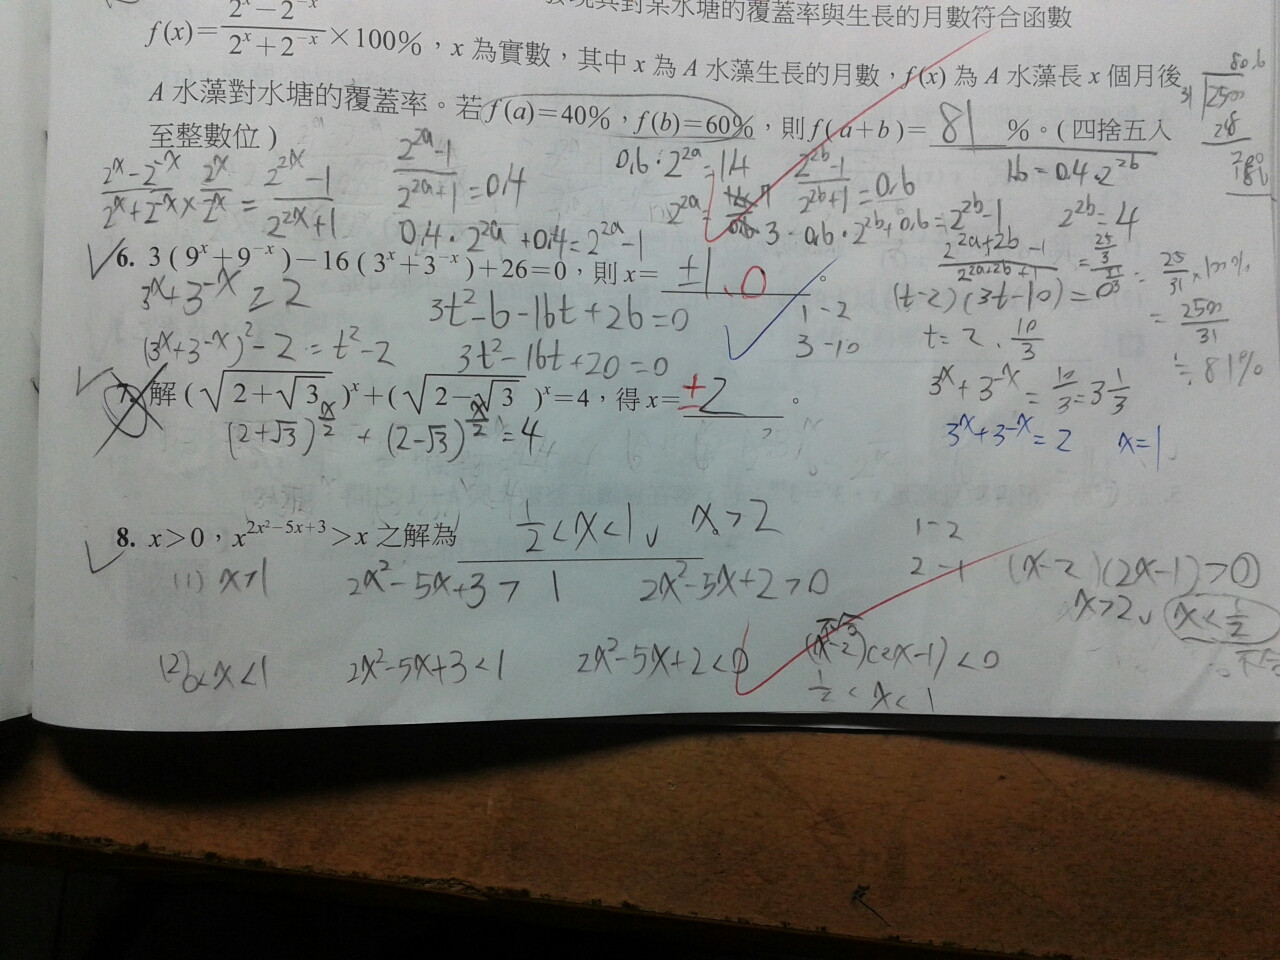 發現其對某水塘的覆蓋率與生長的月數符合函數
f(x)=(2^x-2^-x)/(2^x+2^-x)×100%，x 為實數，其中 x 為 A 水藻生長的月數，f(x) 為 A 水藻長 x 個月後
A 水藻對水塘的覆蓋率。若 f(a)=40%，f(b)=60%，則 f(a+b)= 81 %。(四捨五入
至整數位)
(2^x-2^-x)/(2^x+2^-x) × 2^x/2^x = (2^2x-1)/(2^2x+1)
(2^2a-1)/(2^2a+1)=0.4
0.4·2^2a+0.4=2^2a-1
0.6·2^2a=1.4
(2^2b-1)/(2^2b+1)=0.6
0.6·2^2b+0.6=2^2b-1
1.6=0.4·2^2b
2^2b=4
(2^(2a+2b)-1)/(2^(2a+2b)+1)
= 25/31 ×100%
= 2500/31
≒81%
80.6
31 2500
248
6. 3(9^x+9^-x)-16(3^x+3^-x)+26=0，則 x= ±1.0 。
3^x+3^-x=2
3t²-6-16t+26=0
(t-2)(3t-10)=0
1 -2
3 -10
(3^x+3^-x)²-2=t²-2
3t²-16t+20=0
t=2、10/3
3^x+3^-x=10/3=3 1/3
3^x+3^-x=2 x=1
7. 解 (√(2+√3))^x+(√(2-√3))^x=4，得 x= ±2 。
(2+√3)^(x/2)+(2-√3)^(x/2)=4
8. x>0，x^(2x²-5x+3)>x 之解為 1/2<x<1、x>2
(1) x>1 2x²-5x+3>1 2x²-5x+2>0
1 -2
2 -1
(x-2)(2x-1)>0
x>2、x<1/2
(2) 0<x<1 2x²-5x+3<1 2x²-5x+2<0 (x-2)(2x-1)<0
1/2<x<1